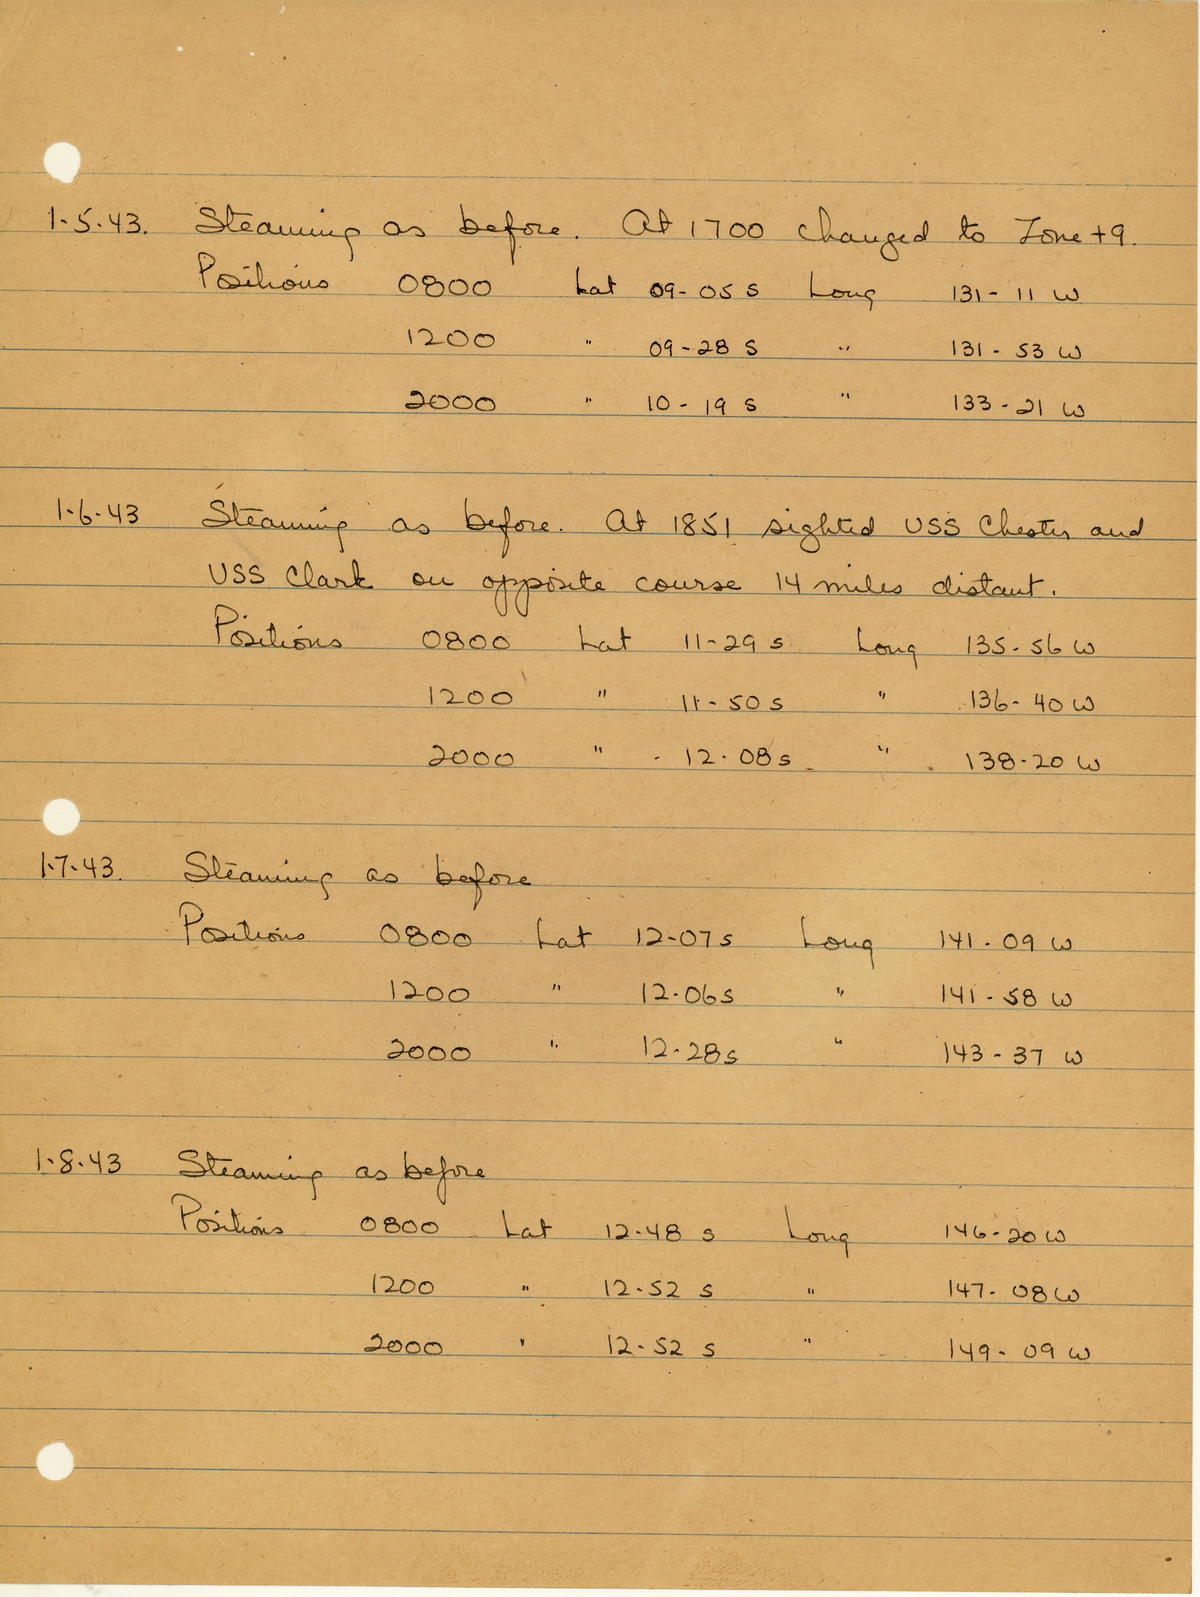 1-5-43. Steaming as before. At 1700 changed to Zone +9.
Positions 0800 Lat 09-05 S Long 131-11 W
1200 " 09-28 S " 131-53 W
2000 " 10-19 S " 133-21 W
1-6-43 Steaming as before. At 1851 sighted USS Chester and
USS Clark on opposite course 14 miles distant.
Positions 0800 Lat 11-29 S Long 135-56 W
1200 " 11-50 S " 136-40 W
2000 " 12-08 S " 138-20 W
1-7-43. Steaming as before
Positions 0800 Lat 12-07 S Long 141-09 W
1200 " 12-06 S " 141-58 W
2000 " 12-28 S " 143-37 W
1-8-43 Steaming as before
Positions 0800 Lat 12-48 S Long 146-20 W
1200 " 12-52 S " 147-08 W
2000 " 12-52 S " 149-09 W